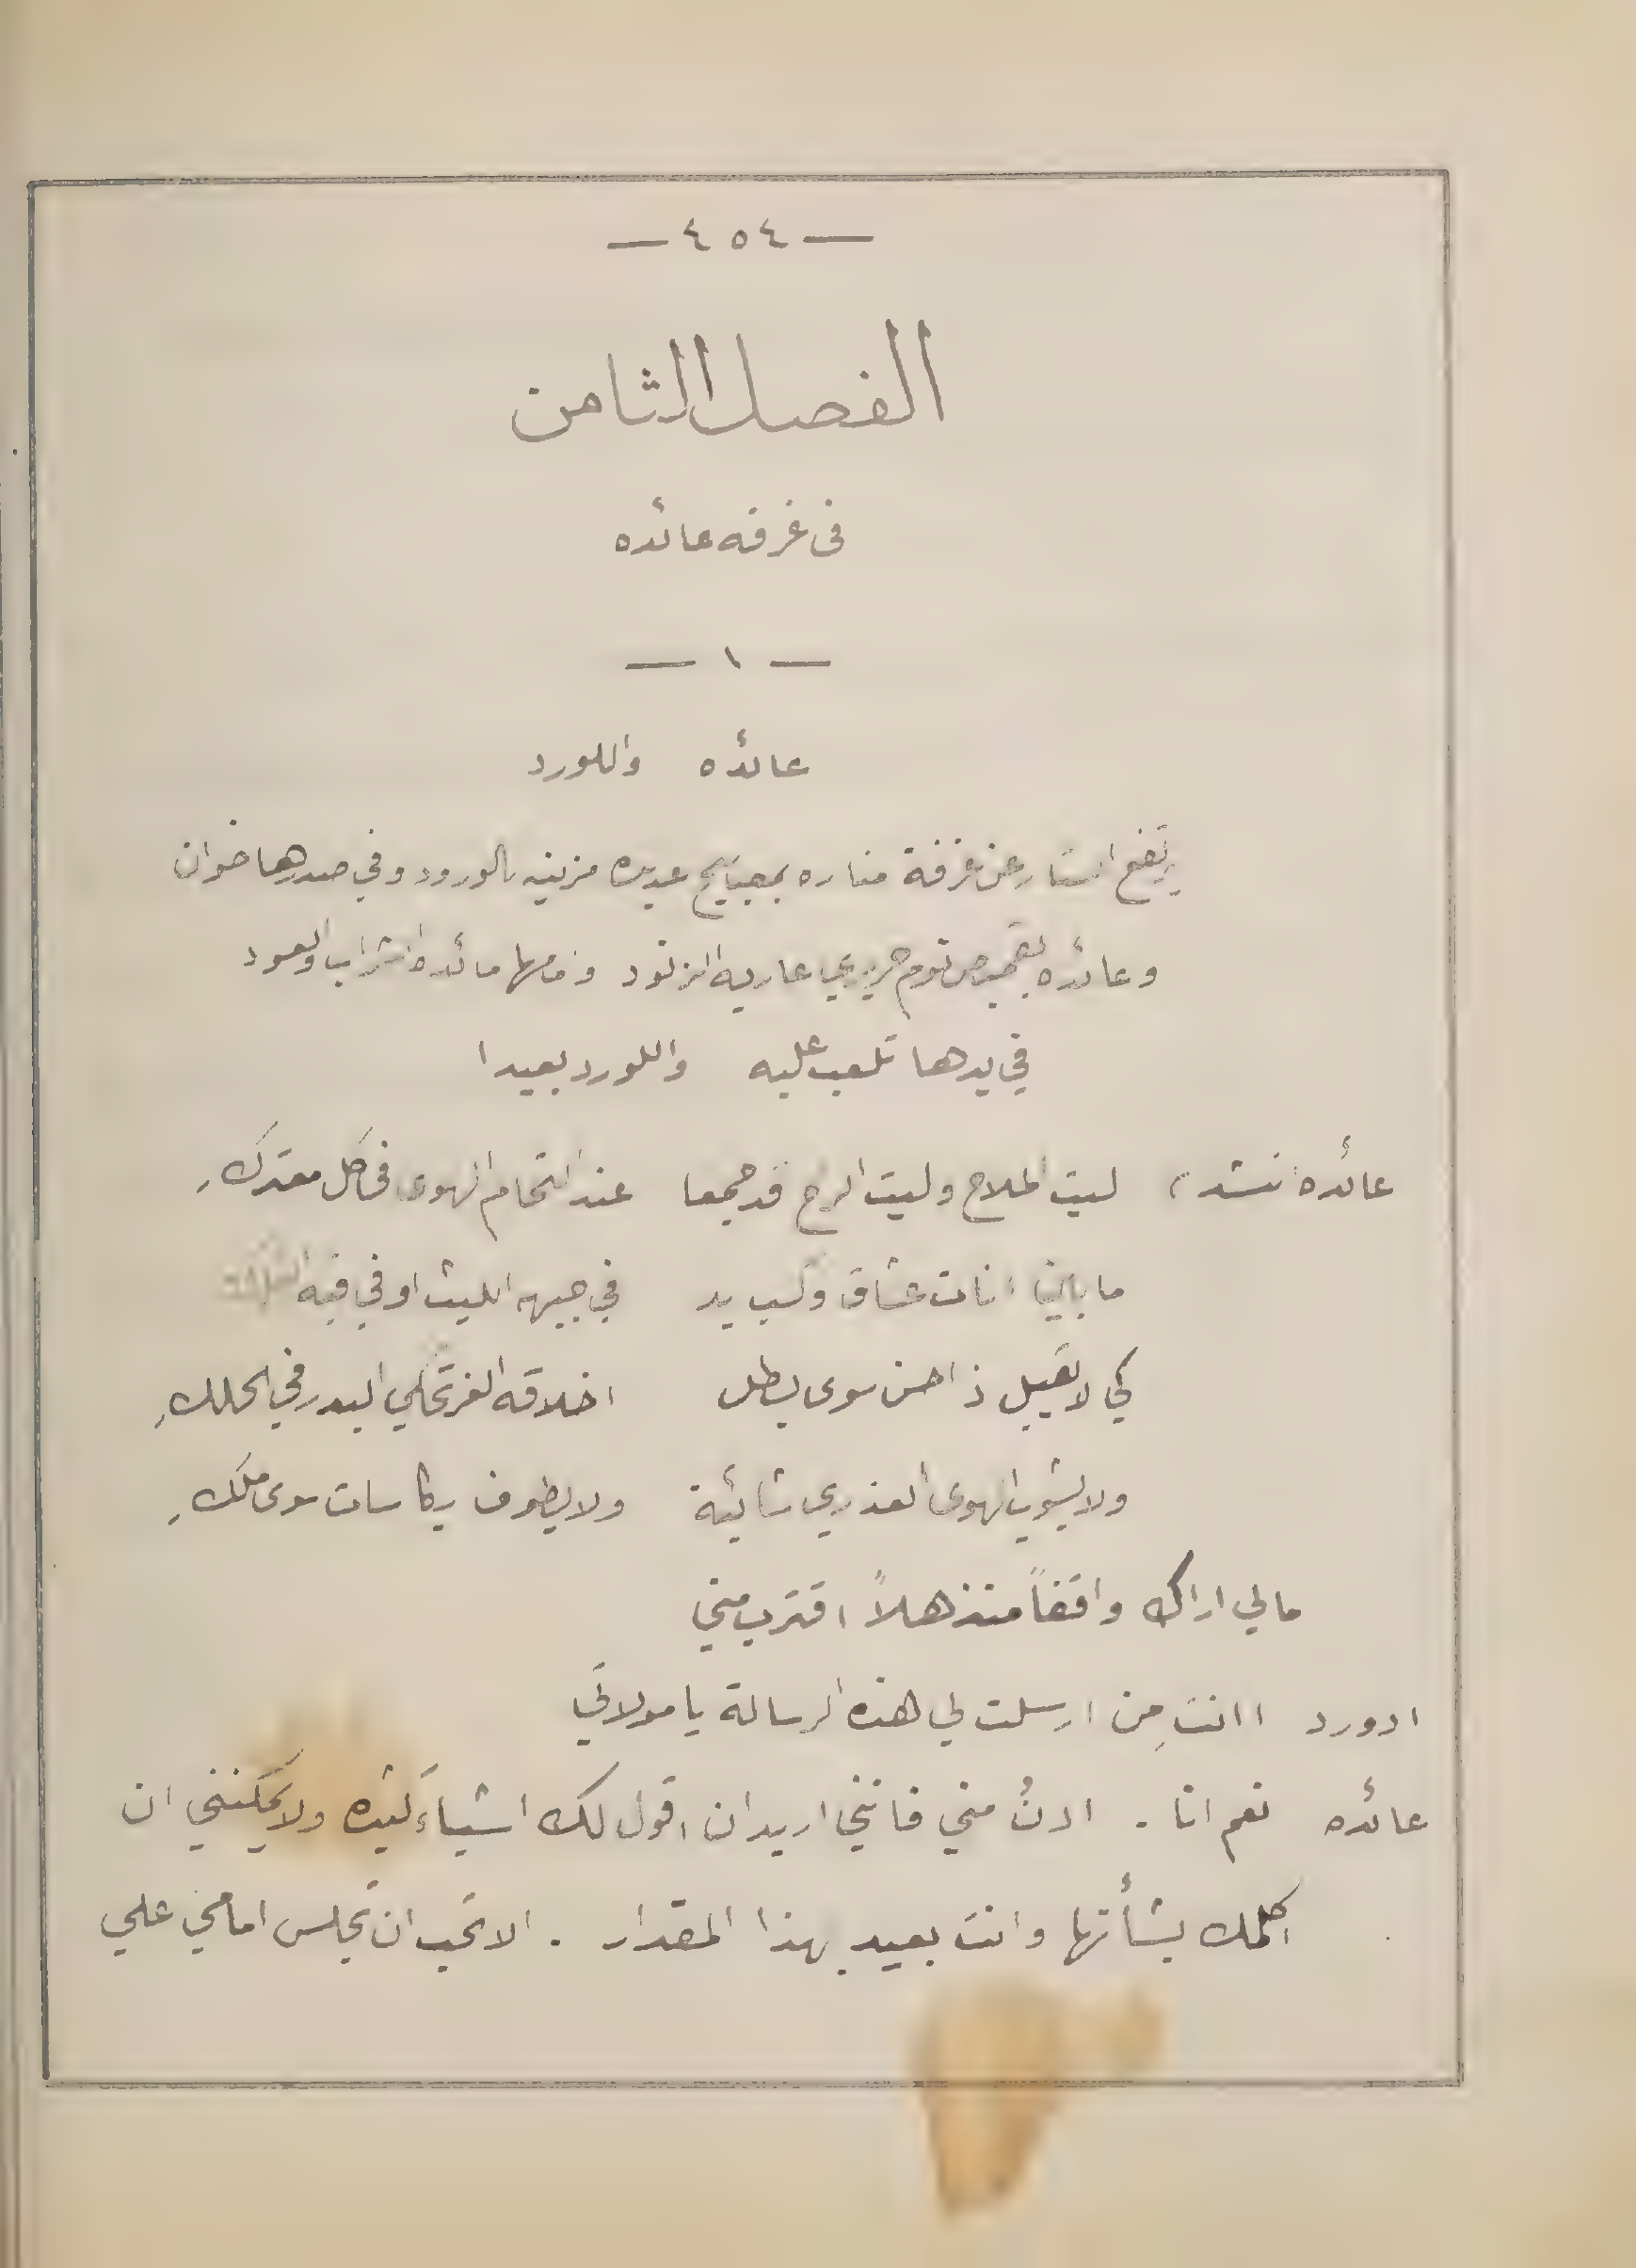 — ٤٥٤ —
الفصل الثامن
فى غرفه عائده
— ١ —
عائده واللورد
يرتفع الستار عن غرفة مناره بمصابيح عديده مزينه بالورود وفي صدرها خوان
وعائده بقميص نوم حريري عاريه الزنود وامامها مائده الشراب والعود
في يدها تلعب عليه واللورد بعيدا
عائده تنشد، ليت الملاح وليت الراح قد جمعا عند التحام الهوى فى كل معتركِ
انات عشاق في جبهه الليث او في قبه
كي لا يقبل ذا حسن سوى بطل اخلاقه الغر تحكي البدر في الحلكِ
ولا يشوب الهوى العذري شائبة ولا يطوف بكاسات سوى ملكِ
مالي اراك واقفاً منذهلاً اقترب مني
ادورد اانتِ من ارسلت لي هذه الرسالة يا مولاتي
عائده نعم انا . ادنُ مني فانني اريد ان اقول لك اشياءَ كثيره ولا يمكنني ان
اكلمك بشأنها وانت بعيد بهذا المقدار . الا تحب ان تجلس امامي علي